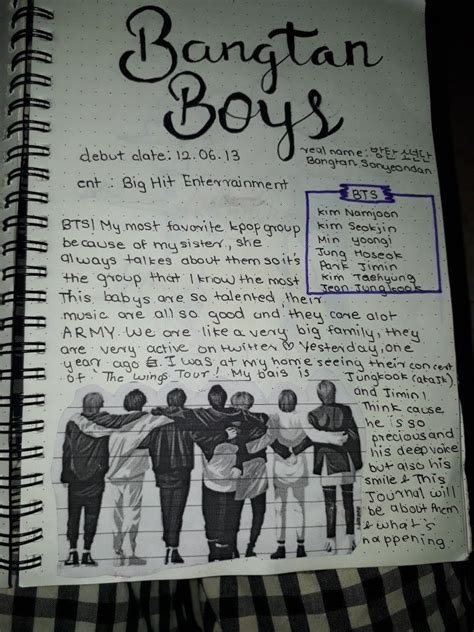 Bangtan
Boys
debut date: 12.06.13
real name: 방탄 소년단
Bangtan Sonyeondan
cnt.: Big Hit Enterrainment
BTS
Kim Namjoon
Kim Seokjin
Min yoongi
Jung Hoseok
Park Jimin
Kim Taehyung
Jeon Jungkook
BTS! My most favorite kpop group
because of my sister, she
always talkes about them so it's
the group that I know the most
This babys are so talented, their
music are all so good und they care alot
ARMY. We are like a very big family, they
are very active on twitter ♡ Yesterday, one
year ago. I was at my home seeing their concert
of "The Wings Tour! My bais is
Jungkook
and Jimin I
Think cause
he is so
precious and
his deep voice
but also his
smile & This
Journal will
be about them
& what's
happening.